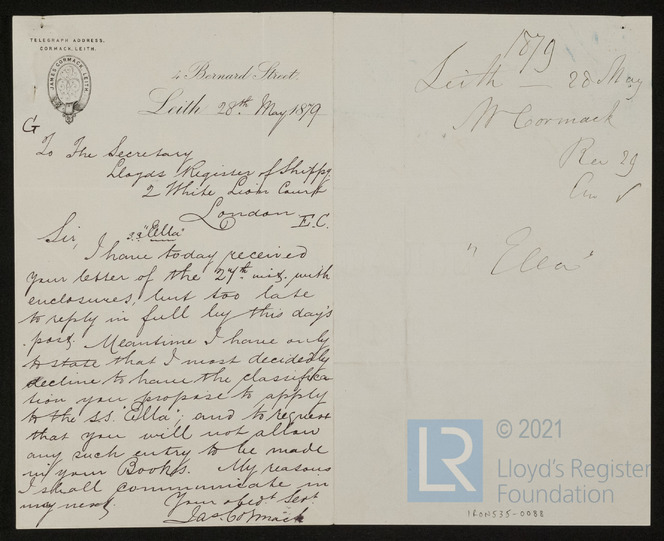 TELEGRAPH ADDRESS,
CORMACK, LEITH.
JAMES CORMACK, LEITH.
4 Bernard Street,
Leith 28th May 1879
G
To The Secretary
Lloyds Register of Shippg
2 White Lion Court
London E.C.
Sir, S.S "Ella"
I have today received
your letter of the 27th inst. with
enclosures, but too late
to reply in full by this day's
post. Meantime I have only
to state that I most decidedly
decline to have the classifica
tion you propose to apply
to the S.S. "Ella"; and to request
that you will not allow
any such entry to be made
in your Books. My reasons
I shall communicate in
my next. Your obedt Sert
Jas. Cormack
1879
Leith — 28 May
Mr Cormack
Rec 29
"Ella"
LR
© 2021
Lloyd's Register
Foundation
IRON535-0088